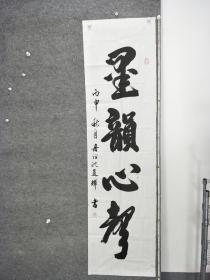 墨韻心聲
丙申秋月
書